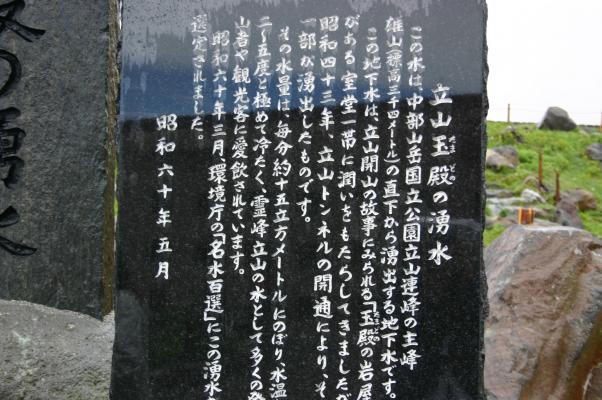 立山玉殿の湧水
たま どの
この水は、中部山岳国立公園立山連峰の主峰
雄山(標高三千四メートル)の直下から湧出する地下水です。
この地下水は、立山開山の故事にみられる「玉殿の岩屋
たまどの
がある室堂一帯に潤いをもたらしてきましたが
昭和四十三年、立山トンネルの開通により、そ
一部が湧出したものです。
その水量は、毎分約十五立方メートルにのぼり、水温
二〜五度と極めて冷たく、霊峰立山の水として多くの登
山者や観光客に愛飲されています。
昭和六十年三月、環境庁の「名水百選」にこの湧水
選定されました。
昭和六十年五月
の湧水